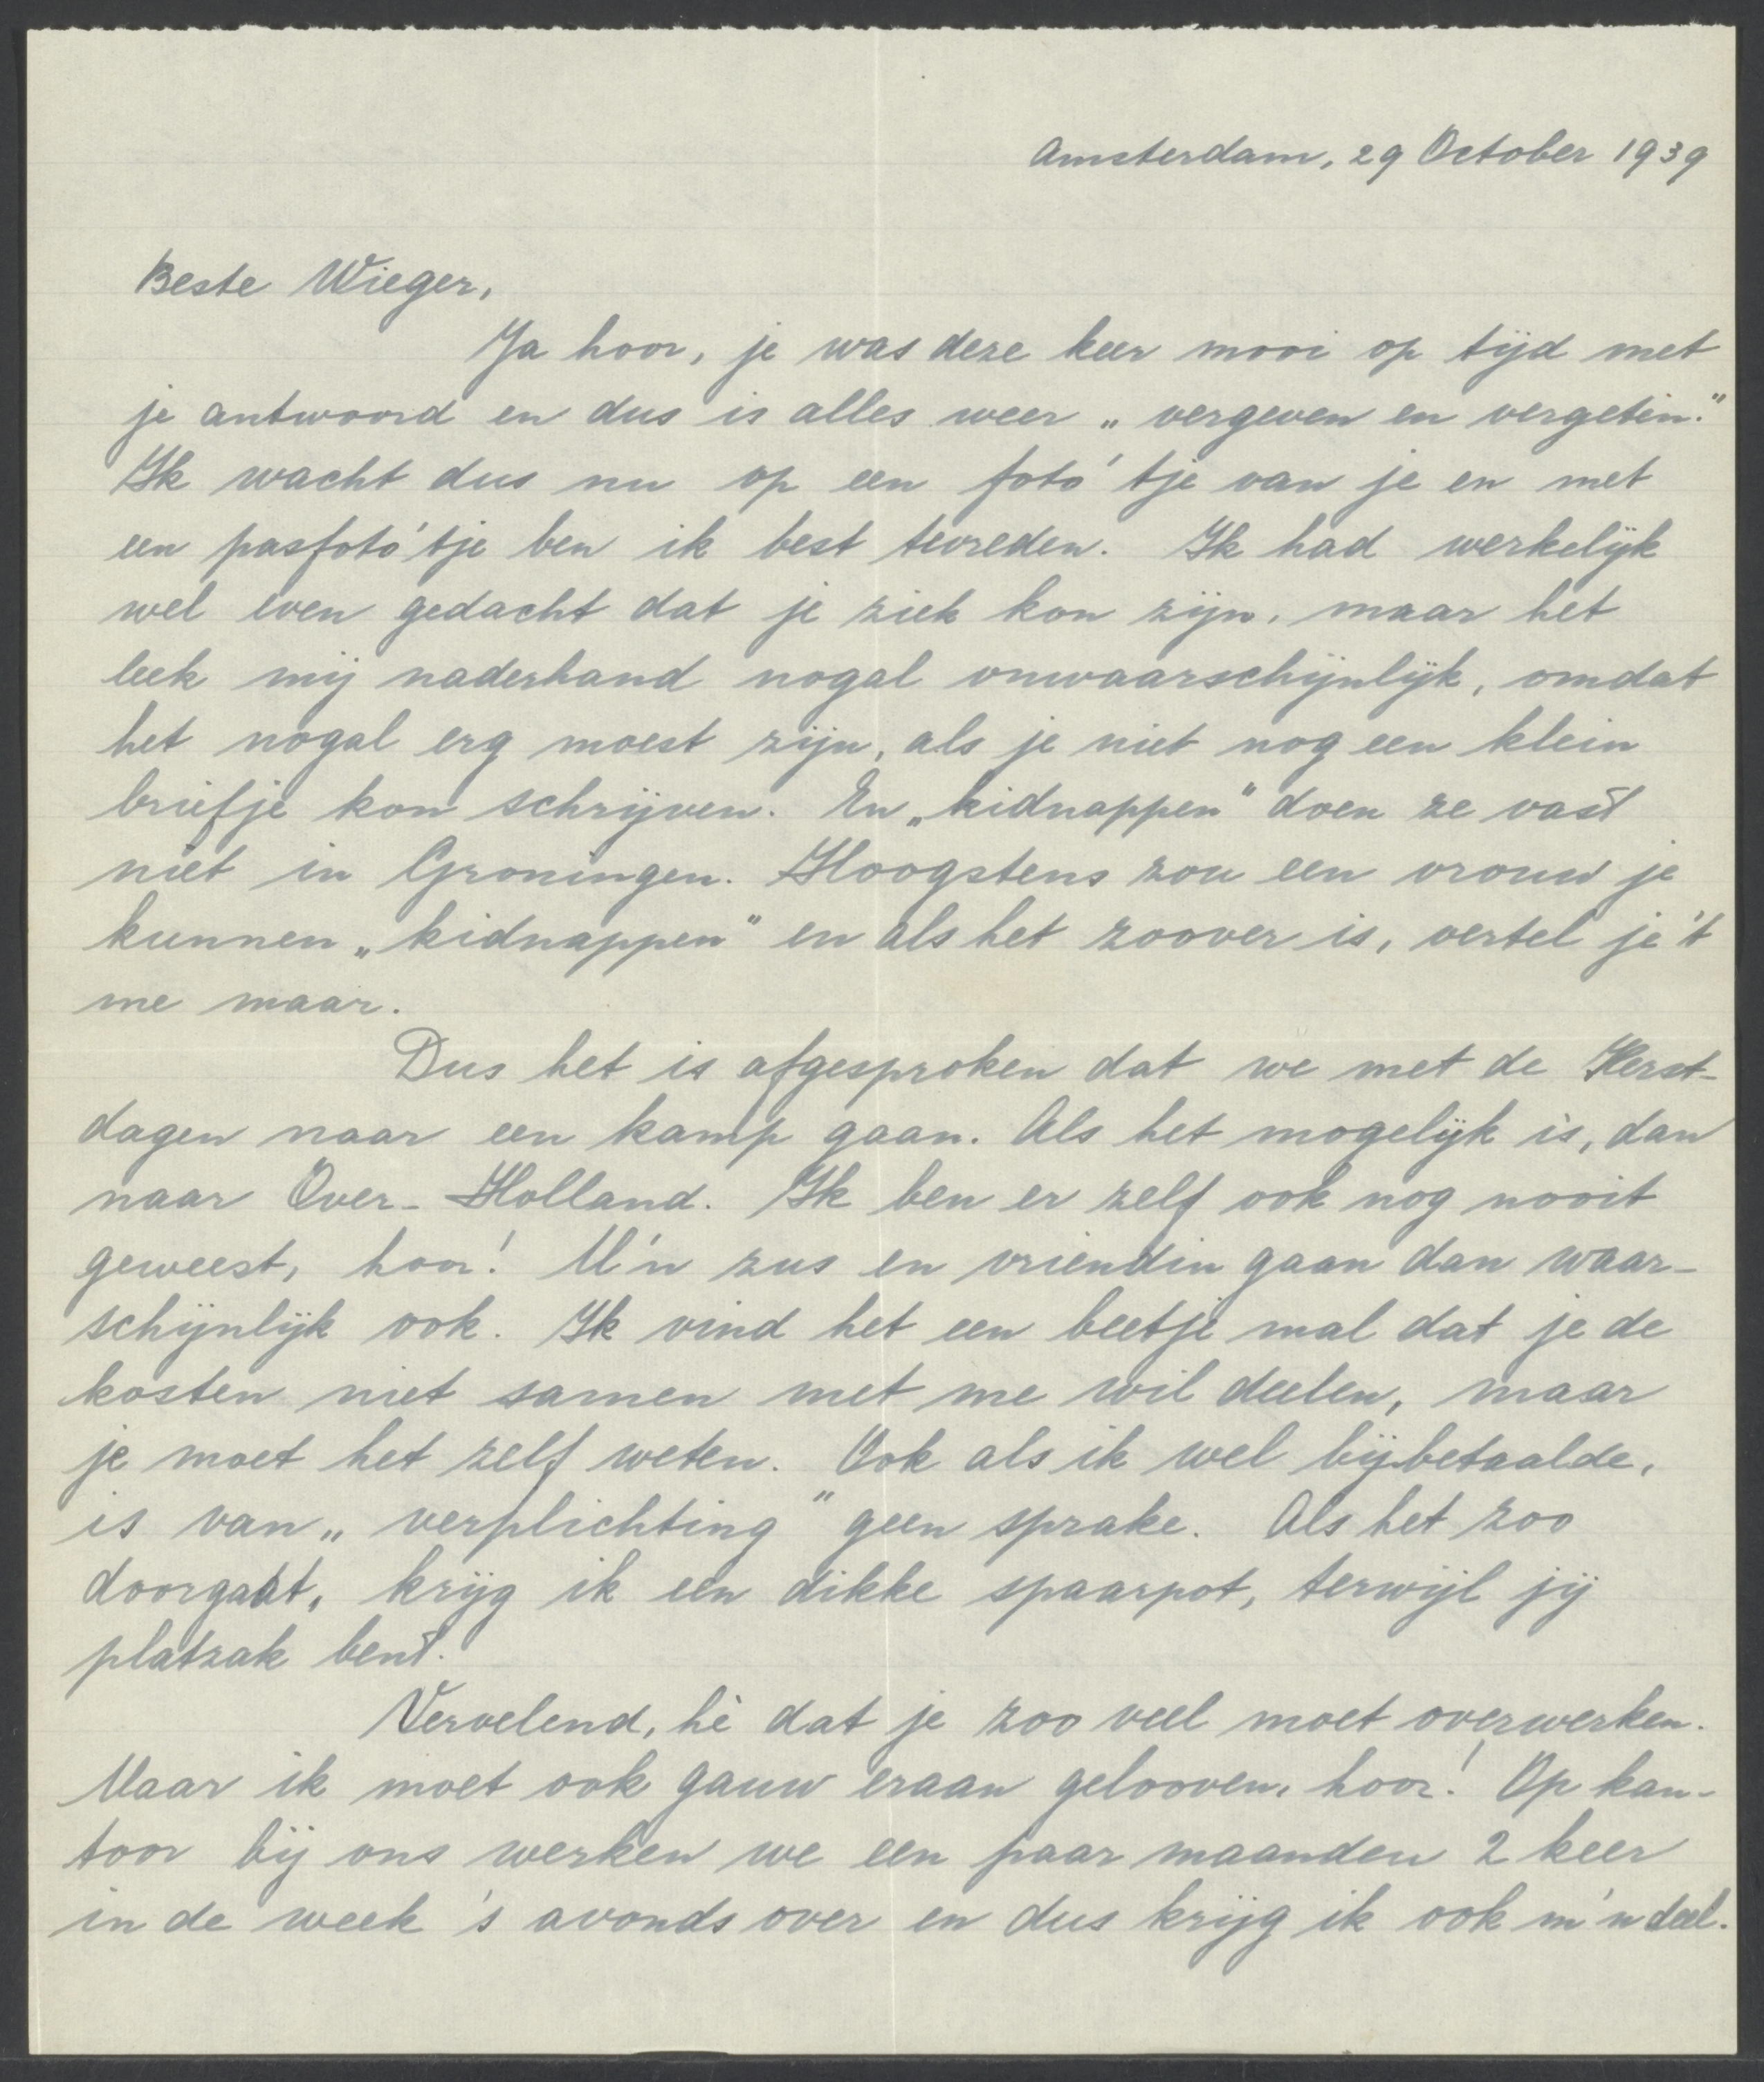 Amsterdam, 29 October 1939
Beste Wieger,
Ja hoor, je was deze keer mooi op tijd met
je antwoord en dus is alles weer „vergeven en vergeten."
Ik wacht dus nu op een foto'tje van je en met
een pasfoto'tje ben ik best tevreden. Ik had werkelijk
wel even gedacht dat je ziek kon zijn, maar het
leek mij naderhand nogal onwaarschijnlijk, omdat
het nogal erg moest zijn, als je niet nog een klein
briefje kon schrijven. En „kidnappen" doen ze vast
niet in Groningen. Hoogstens zou een vrouw je
kunnen „kidnappen" en als het zoover is, vertel je 't
me maar.
Dus het is afgesproken dat we met de Kerst-
dagen naar een kamp gaan. Als het mogelijk is, dan
naar Over-Holland. Ik ben er zelf ook nog nooit
geweest, hoor! M'n zus en vriendin gaan dan waar-
schijnlijk ook. Ik vind het een beetje mal dat je de
kosten niet samen met me wil deelen, maar
je moet het zelf weten. Ook als ik wel bijbetaalde,
is van „verplichting" geen sprake. Als het zoo
doorgaat, krijg ik een dikke spaarpot, terwijl jij
platzak bent.
Vervelend, hè dat je zoo veel moet overwerken.
Maar ik moet ook gauw eraan gelooven, hoor! Op kan-
toor bij ons werken we een paar maanden 2 keer
in de week 's avonds over en dus krijg ik ook m'n deel.